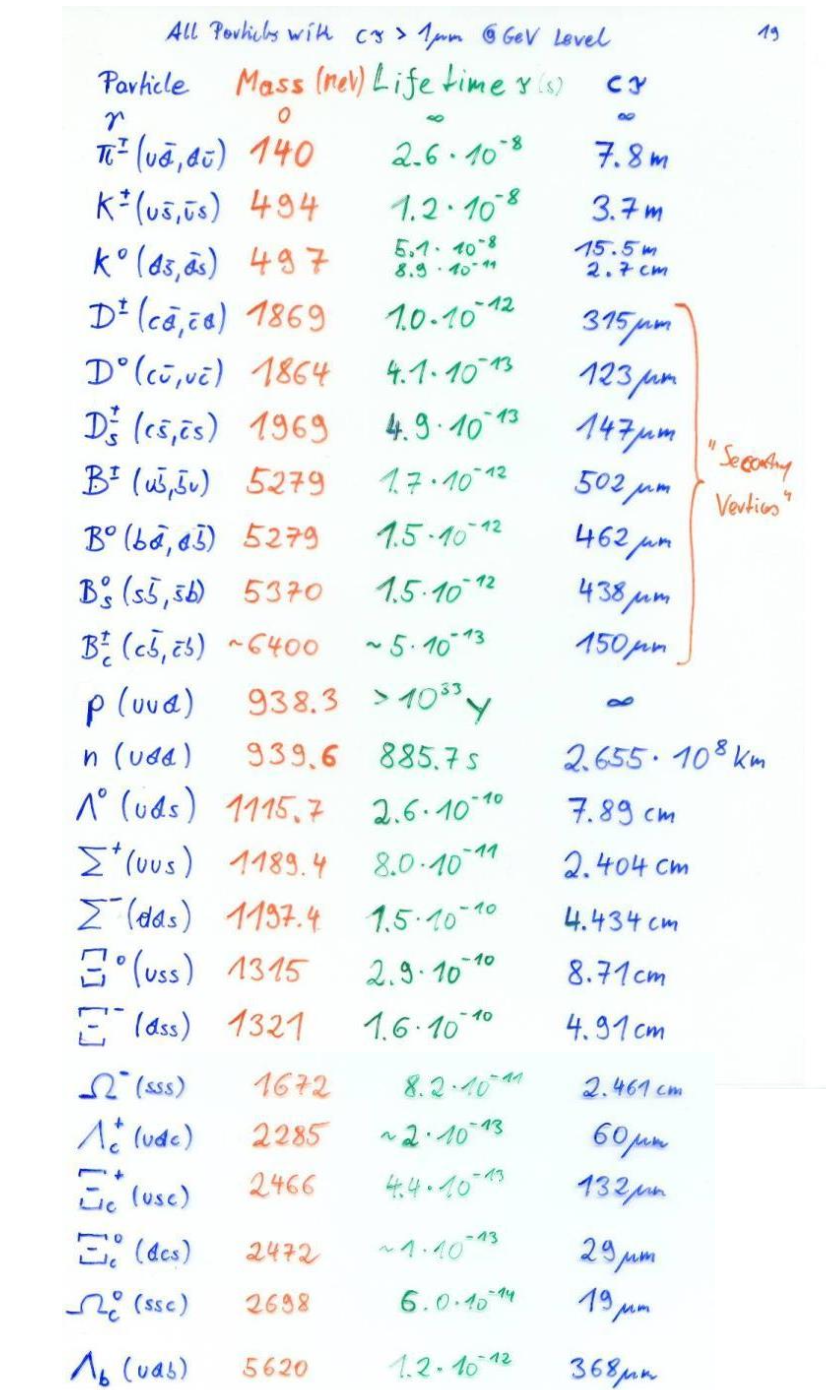 All Particles with cτ > 1μm @ GeV Level 19
Particle Mass (MeV) Life time τ (s) cτ
γ 0 ∞ ∞
π± (ud̄, dū) 140 2.6 · 10⁻⁸ 7.8 m
K± (us̄, ūs) 494 1.2 · 10⁻⁸ 3.7 m
K⁰ (ds̄, d̄s) 497 5.1 · 10⁻⁸ 15.5 m
8.9 · 10⁻¹¹ 2.7 cm
D± (cd̄, c̄d) 1869 1.0 · 10⁻¹² 315 μm
D⁰ (cū, uc̄) 1864 4.1 · 10⁻¹³ 123 μm
Ds± (cs̄, c̄s) 1969 4.9 · 10⁻¹³ 147 μm
"Secondary
B± (ub̄, b̄u) 5279 1.7 · 10⁻¹² 502 μm
Vertices"
B⁰ (bd̄, db̄) 5279 1.5 · 10⁻¹² 462 μm
Bs⁰ (sb̄, s̄b) 5370 1.5 · 10⁻¹² 438 μm
Bc± (cb̄, c̄b) ~6400 ~ 5 · 10⁻¹³ 150 μm
p (uud) 938.3 > 10³³ y ∞
n (udd) 939.6 885.7 s 2.655 · 10⁸ km
Λ⁰ (uds) 1115.7 2.6 · 10⁻¹⁰ 7.89 cm
Σ⁺ (uus) 1189.4 8.0 · 10⁻¹¹ 2.404 cm
Σ⁻ (dds) 1197.4 1.5 · 10⁻¹⁰ 4.434 cm
Ξ⁰ (uss) 1315 2.9 · 10⁻¹⁰ 8.71 cm
Ξ⁻ (dss) 1321 1.6 · 10⁻¹⁰ 4.91 cm
Ω⁻ (sss) 1672 8.2 · 10⁻¹¹ 2.461 cm
Λc⁺ (udc) 2285 ~ 2 · 10⁻¹³ 60 μm
Ξc⁺ (usc) 2466 4.4 · 10⁻¹³ 132 μm
Ξc⁰ (dcs) 2472 ~ 1 · 10⁻¹³ 29 μm
Ωc⁰ (ssc) 2698 6.0 · 10⁻¹⁴ 19 μm
Λb (udb) 5620 1.2 · 10⁻¹² 368 μm